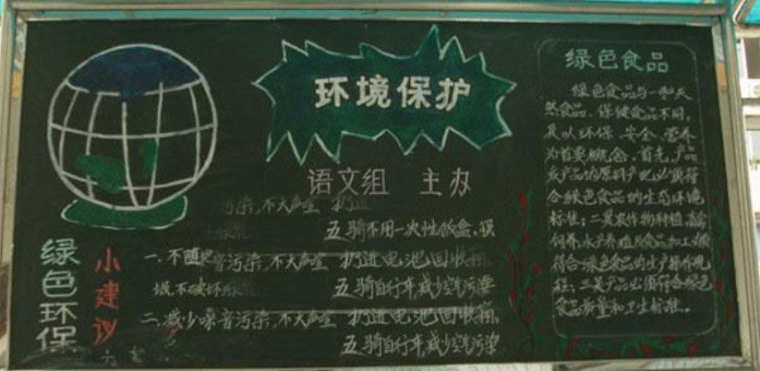 环境保护
语文组 主办
绿色环保
小建议
污染,不大声喧
五骑不用一次性饭盒,
一、不随 音污染,不大声喧 扔进电池回收箱,
圾,不破坏 五骑自行车,减少空气污染
二、减少噪音污染,不大声喧 扔进电池回收箱,
五骑自行车,减少空气污染
绿色食品
绿色食品与一种天
然食品、保健食品不同,
其以环保、安全、营养
为首要概念。首先,产品
或产品的原料产地必须符
合绿色食品的生态环境
标准;二是农作物种植、畜禽
饲养、水产养殖及食品加工必须
符合绿色食品的生产操作规
程;三是产品必须符合绿色
食品质量和卫生标准。